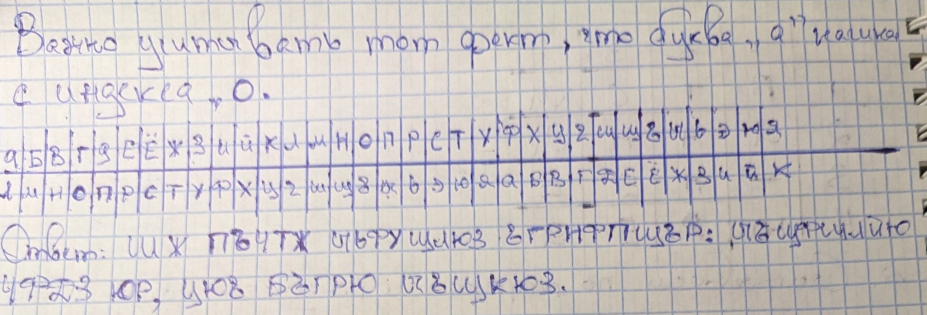 Важно учитывать тот факт, что буква „а" начина
с индекса „0.
А Б В Г Д Е Ё Ж З И Й К Л М Н О П Р С Т У Ф Х Ц Ч Ш Щ Ъ Ы Ь Э Ю Я
Л М Н О П Р С Т У Ф Х Ц Ч Ш Щ Ъ Ы Ь Э Ю Я А Б В Г Д Е Ё Ж З И Й К
Ответ: ШЖ ПЪЧТЖ ЫЬФУЩЛЮЗ ЪГРНФПЩЪР:
ЧФДЗ ЮР, ЦЮЪ БЪГРЮ ЫЪЩКЮЗ.